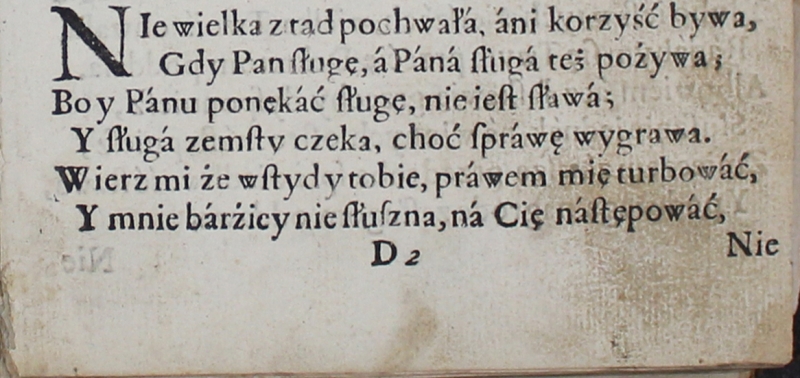 NIe wielka z tad pochwałá, áni korzyść bywa,
Gdy Pan ſługę, á Páná ſługá też pożywa;
Bo y Pánu ponękáć ſługę, nie ieſt ſławá;
Y ſługá zemſty czeka, choć ſpráwę wygrawa.
Wierz mi że wſtyd y tobie, práwem mię turbowáć,
Y mnie bárźiey nie ſłuſzna, ná Cię náſtępowáć,
D 2
Nie